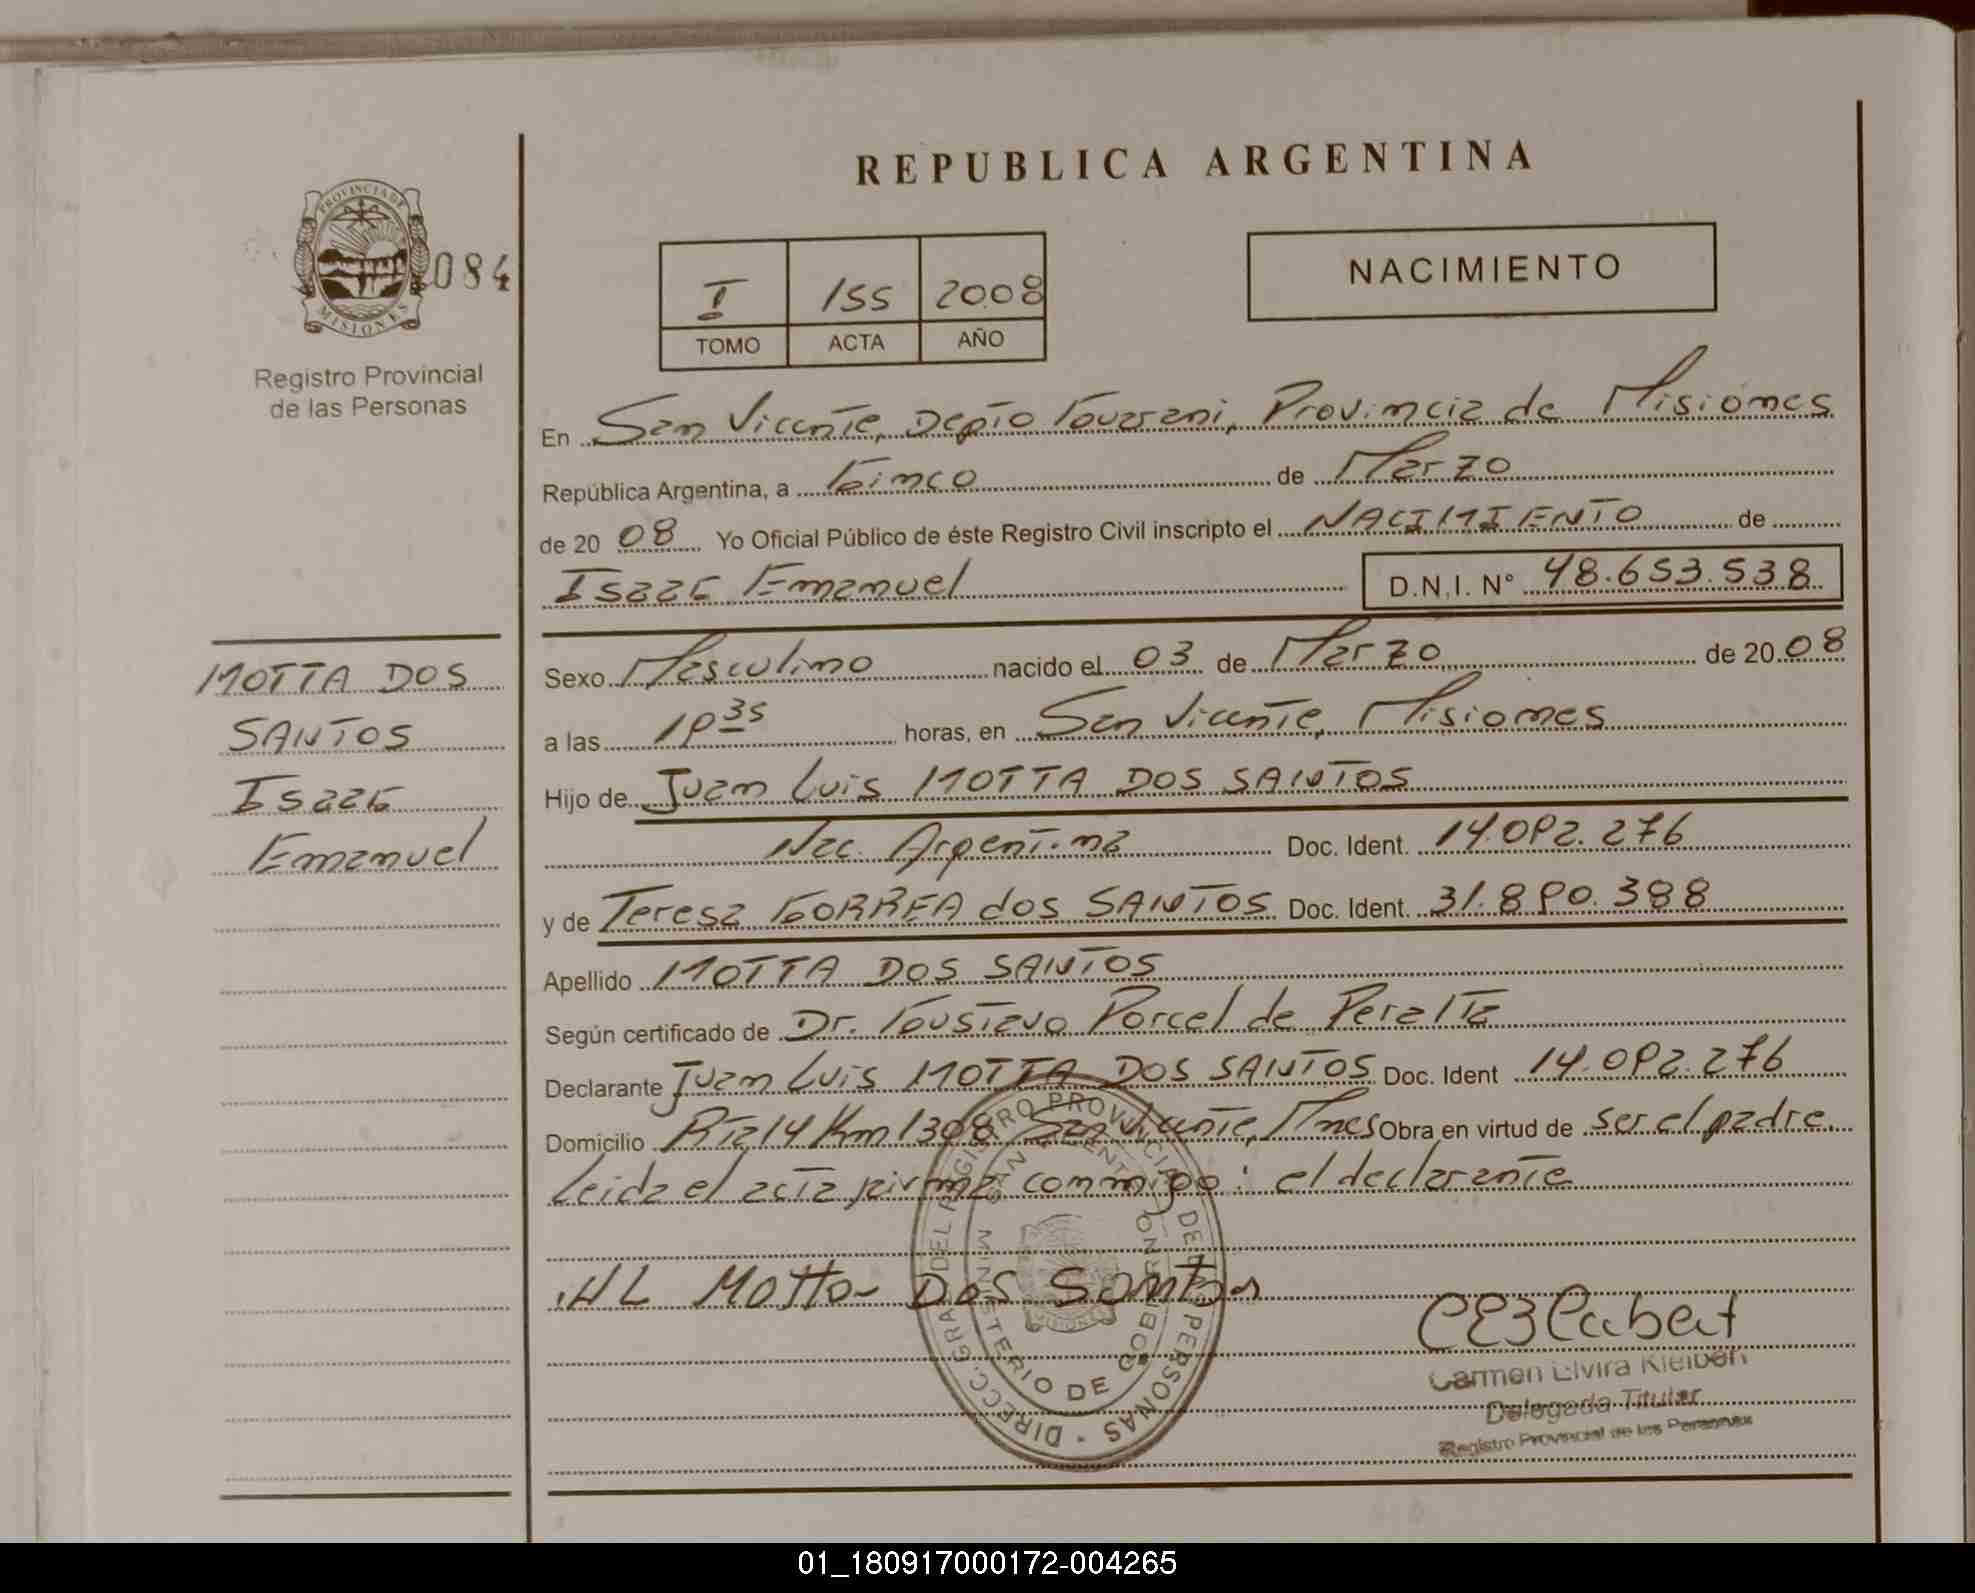 REPUBLICA ARGENTINA
PROVINCIA DE MISIONES
084
Registro Provincial
de las Personas
I 155 2008
TOMO ACTA AÑO
NACIMIENTO
En San Vicente, Depto Guarani, Provincia de Misiones
República Argentina, a Cinco de Marzo
de 20 08 Yo Oficial Público de éste Registro Civil inscripto el NACIMIENTO de
Isaac Emanuel D.N.I. N° 48.653.538
MOTTA DOS
SANTOS
Isaac
Emanuel
Sexo Masculino nacido el 03 de Marzo de 20 08
a las 19 35 horas, en San Vicente, Misiones
Hijo de Juan Luis MOTTA DOS SANTOS
Nac. Argentina Doc. Ident. 14.092.276
y de Teresa CORREA dos SANTOS Doc. Ident. 31.890.388
Apellido MOTTA DOS SANTOS
Según certificado de Dr. Gustavo Porcel de Peralta
Declarante Juan Luis MOTTA DOS SANTOS Doc. Ident 14.092.276
Domicilio Rta 14 Km 1308 San Vicente, Mnes Obra en virtud de ser el padre.
Leida el acta firma conmigo: el declarante
Motta Dos Santos
DIRECC. GRAL. DEL REGISTRO PROVINCIAL DE LAS PERSONAS
MINISTERIO DE GOBIERNO
MISIONES
Carmen Elvira
Delegada Titular
Registro Provincial de las Personas
01_180917000172-004265